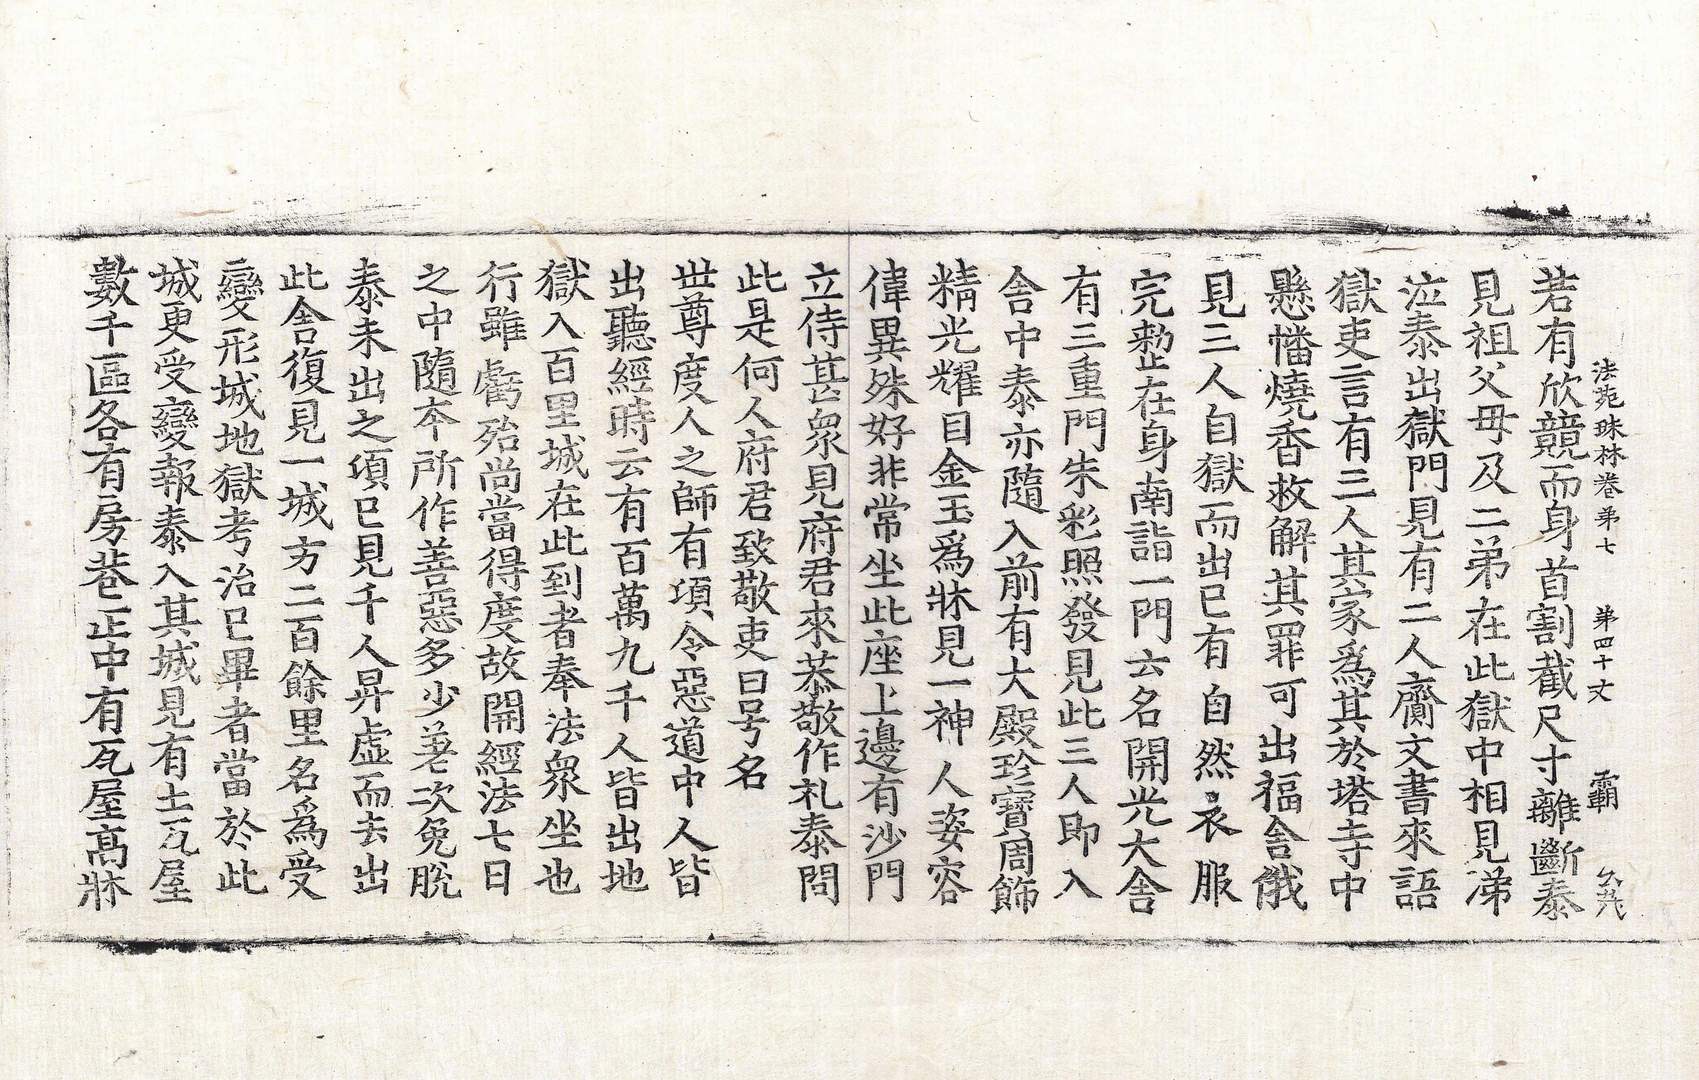 法苑珠林卷第七 第四十丈 霸
若有欣競而身首割截尺寸離斷泰
見祖父母及二弟在此獄中相見涕
泣泰出獄門見有二人齎文書來語
獄吏言有三人其家爲其於塔寺中
懸幡燒香救解其罪可出福舍俄
見三人自獄而出已有自然衣服
完整在身南詣一門云名開光大舍
有三重門朱彩照發見此三人即入
舍中泰亦隨入前有大殿珍寶周飾
精光耀目金玉爲牀見一神人姿容
偉異殊好非常坐此座上邊有沙門
立侍甚衆見府君來恭敬作礼泰問
此是何人府君致敬吏曰号名
世尊度人之師有項令惡道中人皆
出聽經時云有百萬九千人皆出地
獄入百里城在此到者奉法衆坐也
行雖虧殆尚當得度故開經法七日
之中隨本所作善惡多少差次免脫
泰未出之項已見千人昇虛而去出
此舍復見一城方二百餘里名爲受
變形城地獄考治已畢者當於此
城更受變報泰入其城見有土瓦屋
數千區各有房巷正中有瓦屋高牀